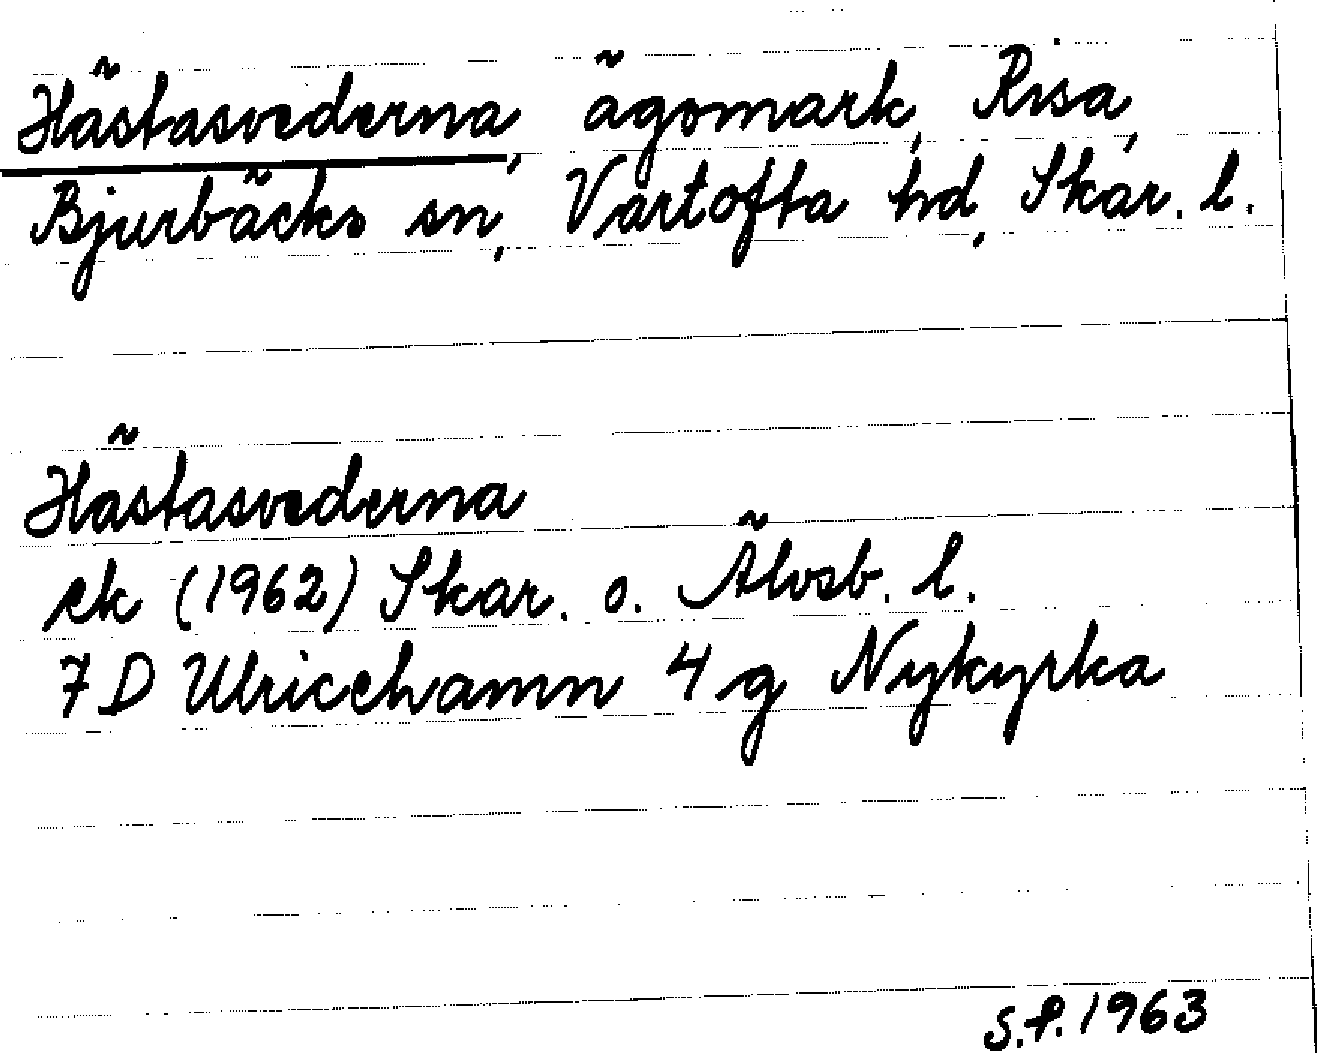 Hästasvederna, ägomark, Risa,
Bjurbäcks sn, Vartofta hd, Skar. l.
Hästasvederna
ek (1962) Skar. o. Älvsb. l.
7D Ulricehamn 4g Nykyrka
S.P. 1963